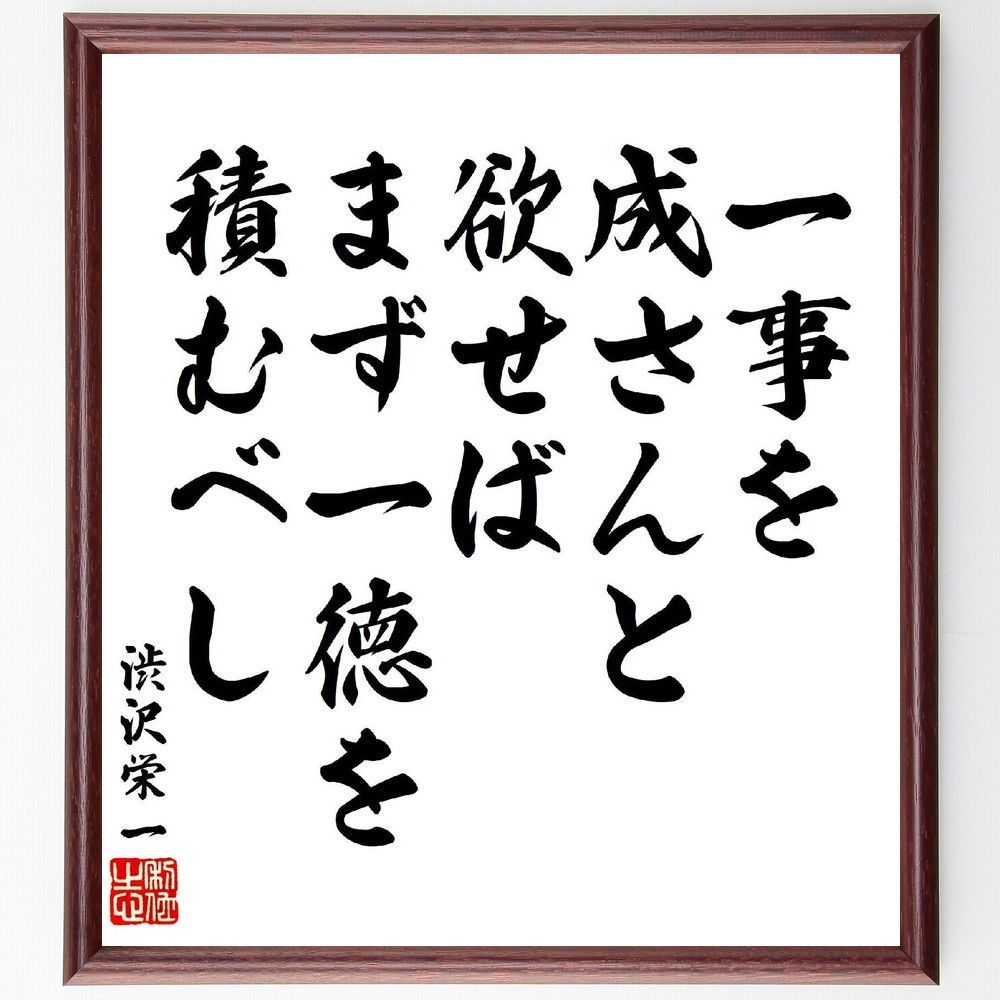 一事を
成さんと
欲せば
まず一徳を
積むべし
渋沢栄一